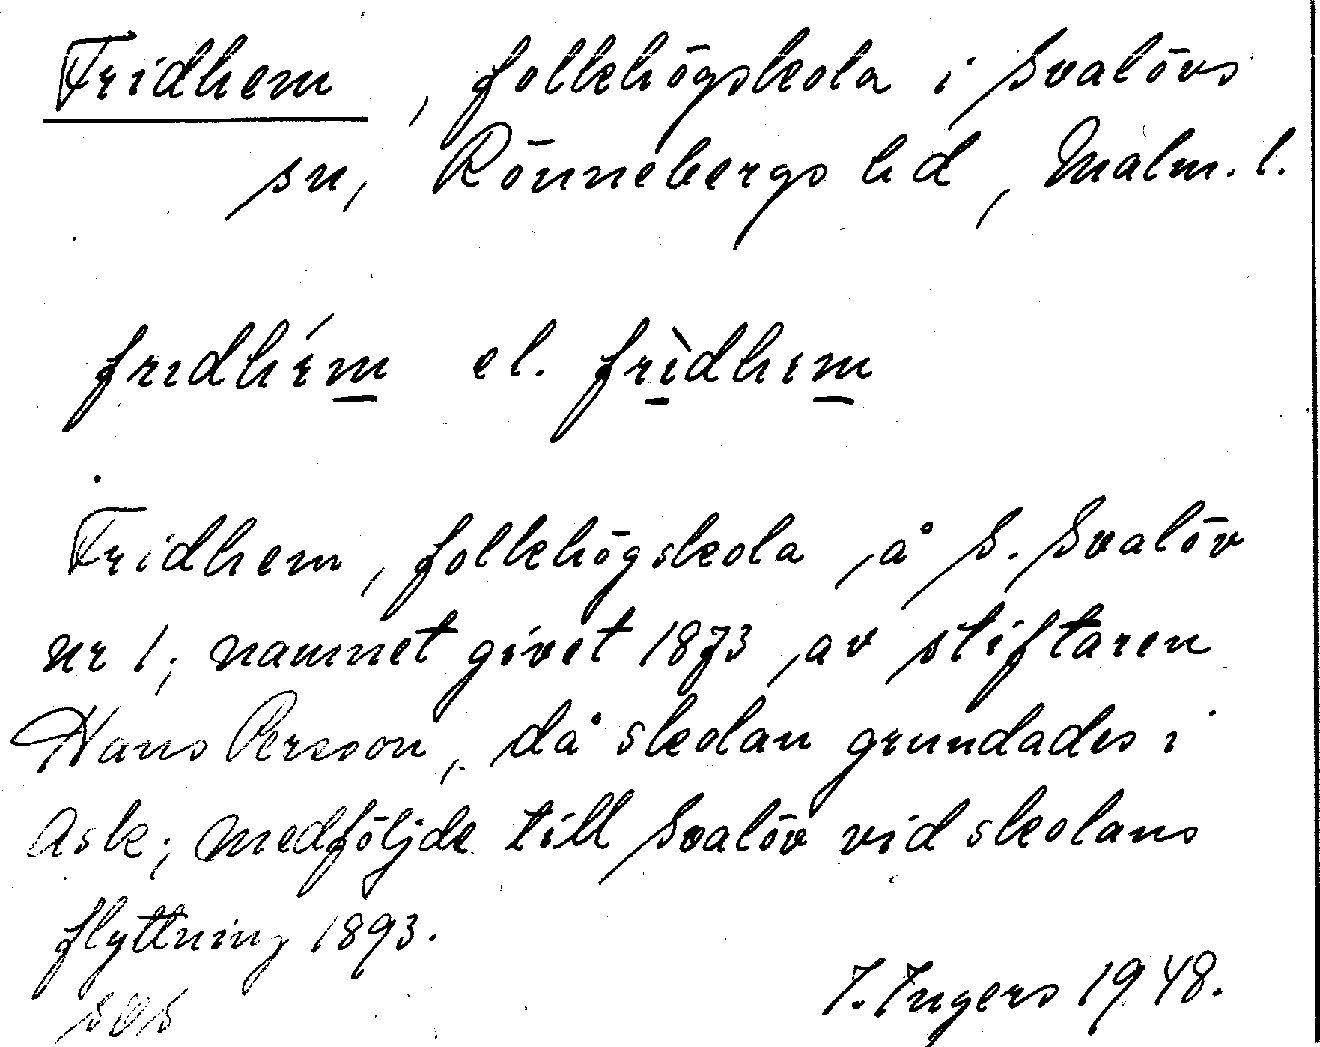 Fridhem, folkhögskola i Svalövs
sn, Rönnebergs hd, Malm. l.
fridhém el. frìdhem
Fridhem, folkhögskola å S. Svalöv
nr 1; namnet givet 1873 av stiftaren
Hans Persson, då skolan grundades i
Ask; medföljde till Svalöv vid skolans
flyttning 1893.
I. Ingers 1948.